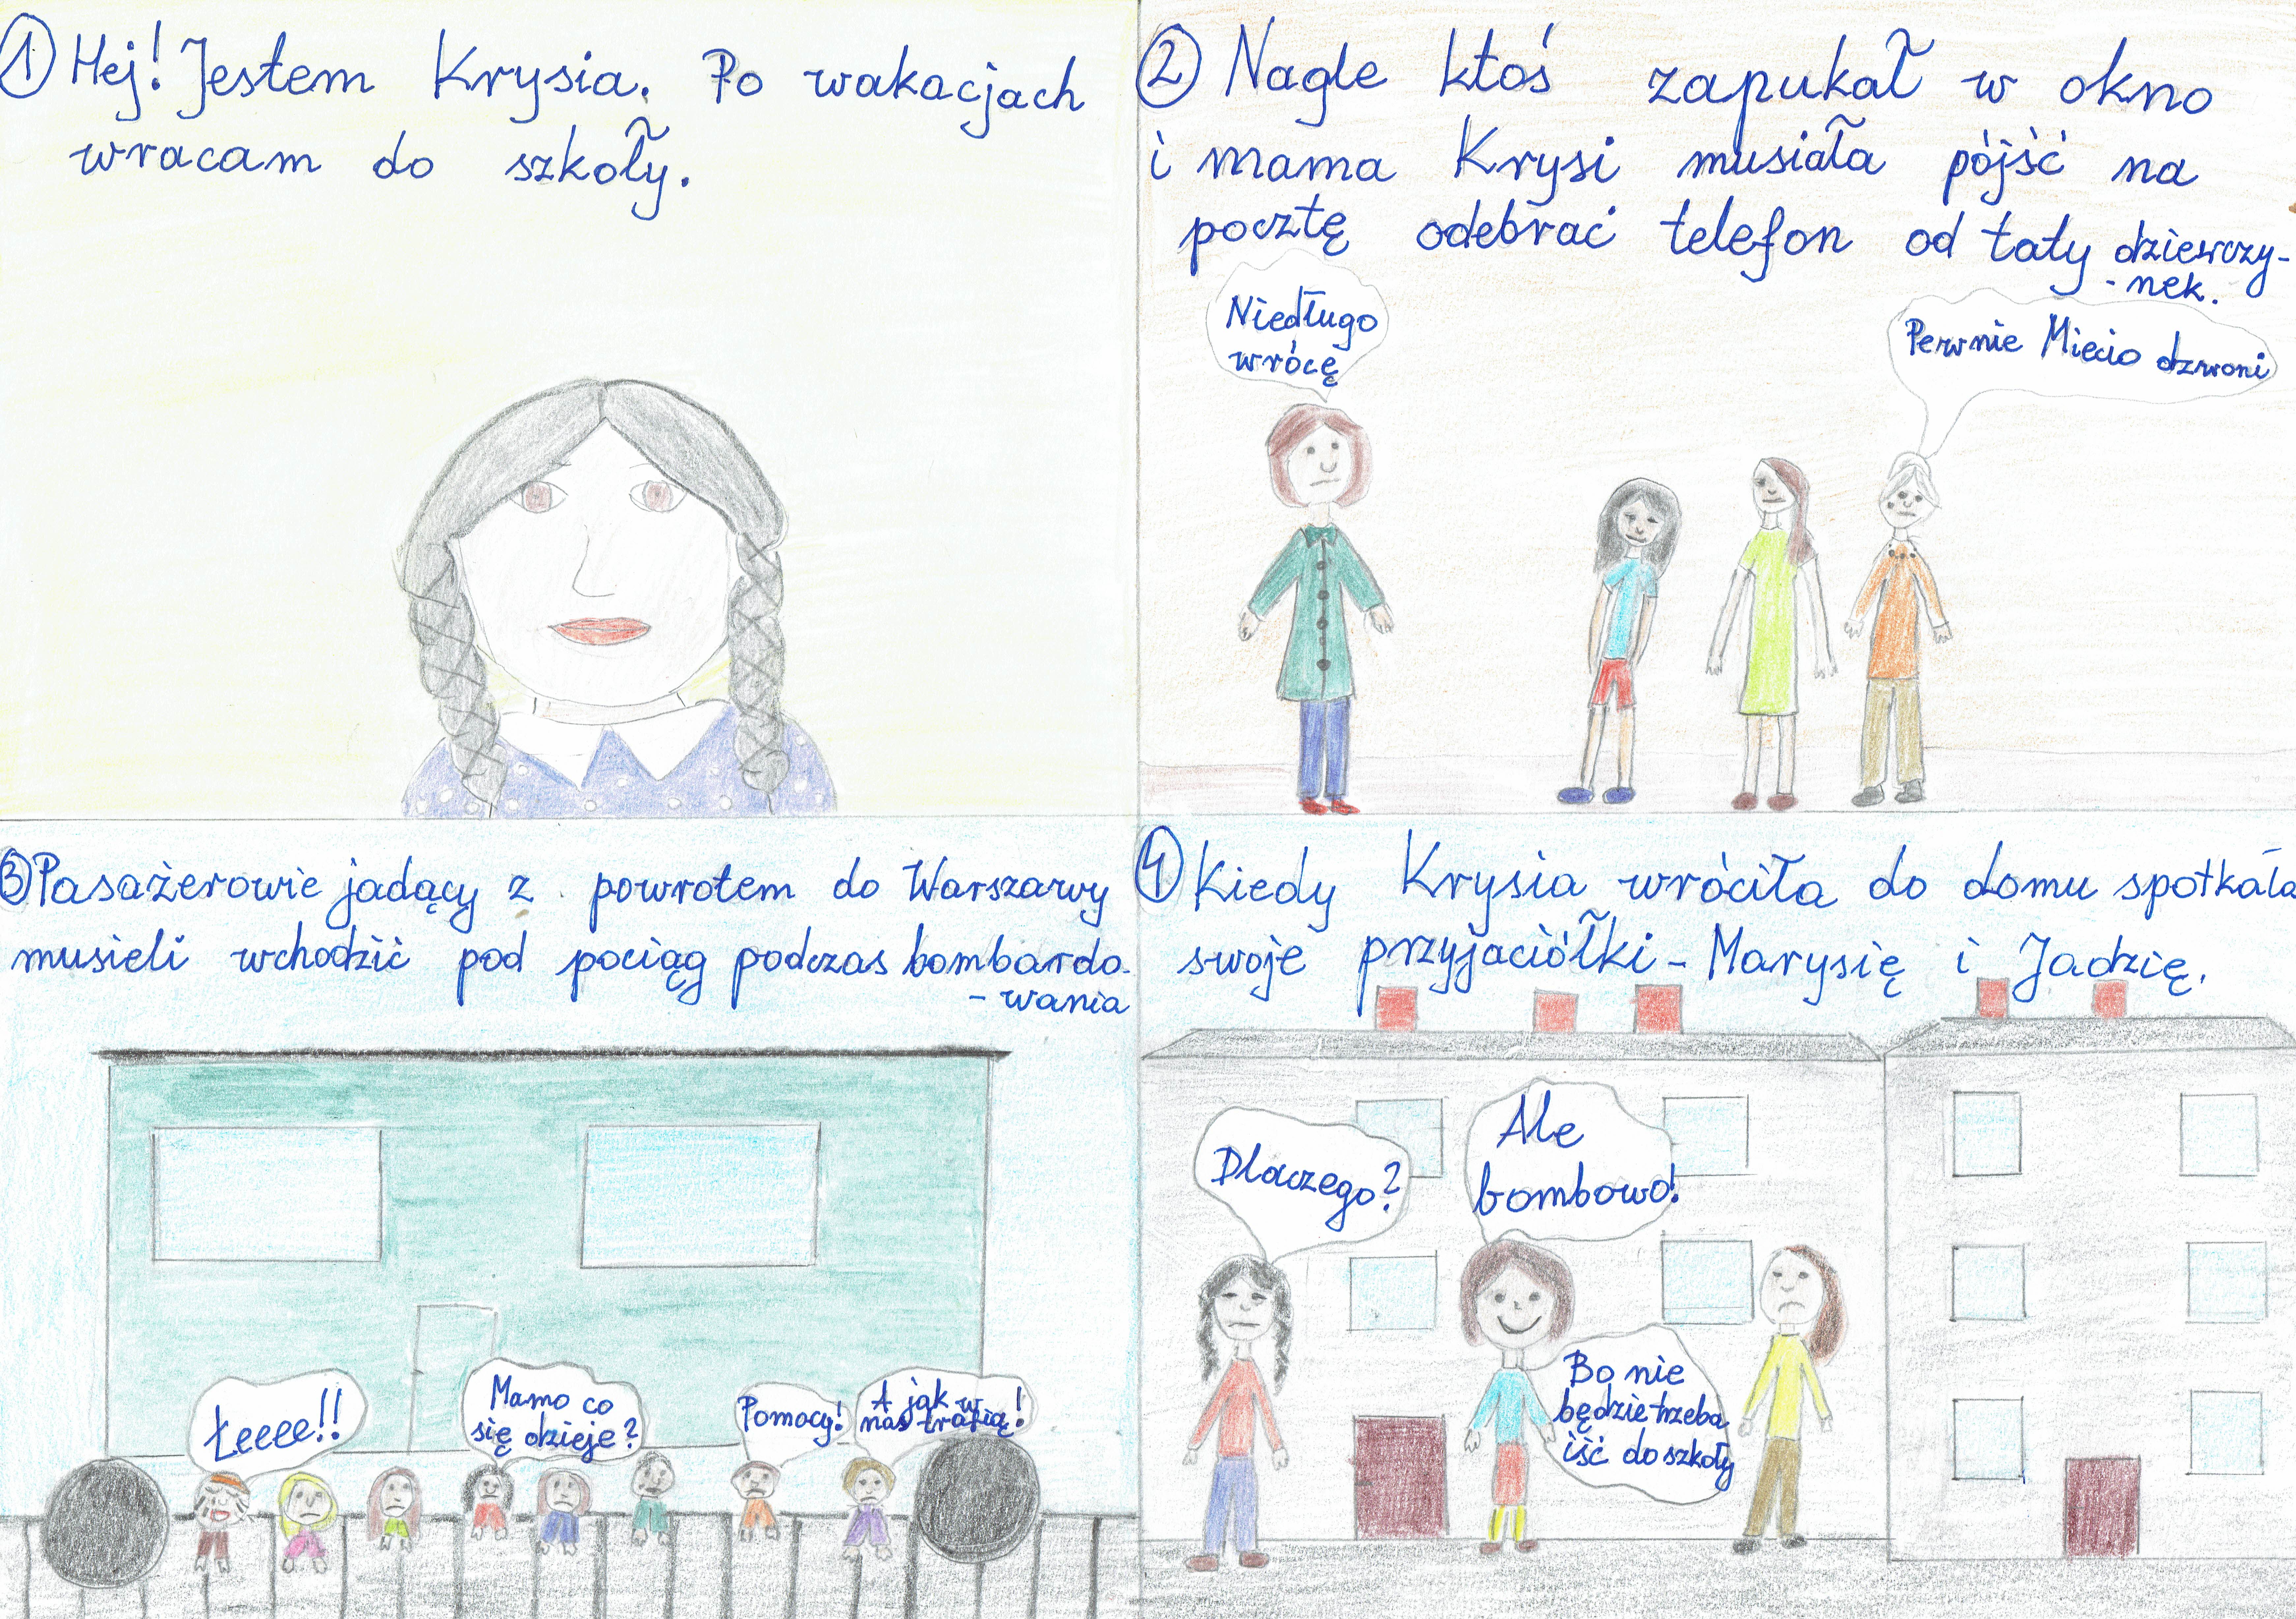 ① Hej! Jestem Krysia. Po wakacjach
wracam do szkoły.
② Nagle ktoś zapukał w okno
i mama Krysi musiała pójść na
pocztę odebrać telefon od taty dziewczy-
-nek.
Niedługo
wrócę
Pewnie Miecio dzwoni
③ Pasażerowie jadący z powrotem do Warszawy
musieli wchodzić pod pociąg podczas bombardo-
-wania
Łeeee!!
Mamo co
się dzieje?
Pomocy!
A jak w
nas trafią!
④ Kiedy Krysia wróciła do domu spotkała
swoje przyjaciółki - Marysię i Jadzię.
Dlaczego?
Ale
bombowo!
Bo nie
będzie trzeba
iść do szkoły